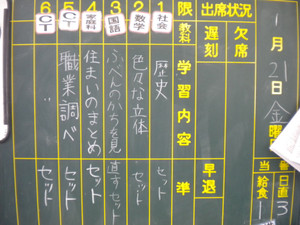 1月21日金曜日
当番 日直 3
給食 1
出席状況
欠席
遅刻
早退
限 教科 学習内容 準
1 社会 歴史 セット
2 数学 色々な立体 セット
3 国語 ふべんのかちを見直す セット
4 家庭科 住まいのまとめ セット
5 CT 職業調べ セット
6 CT 〃 セット